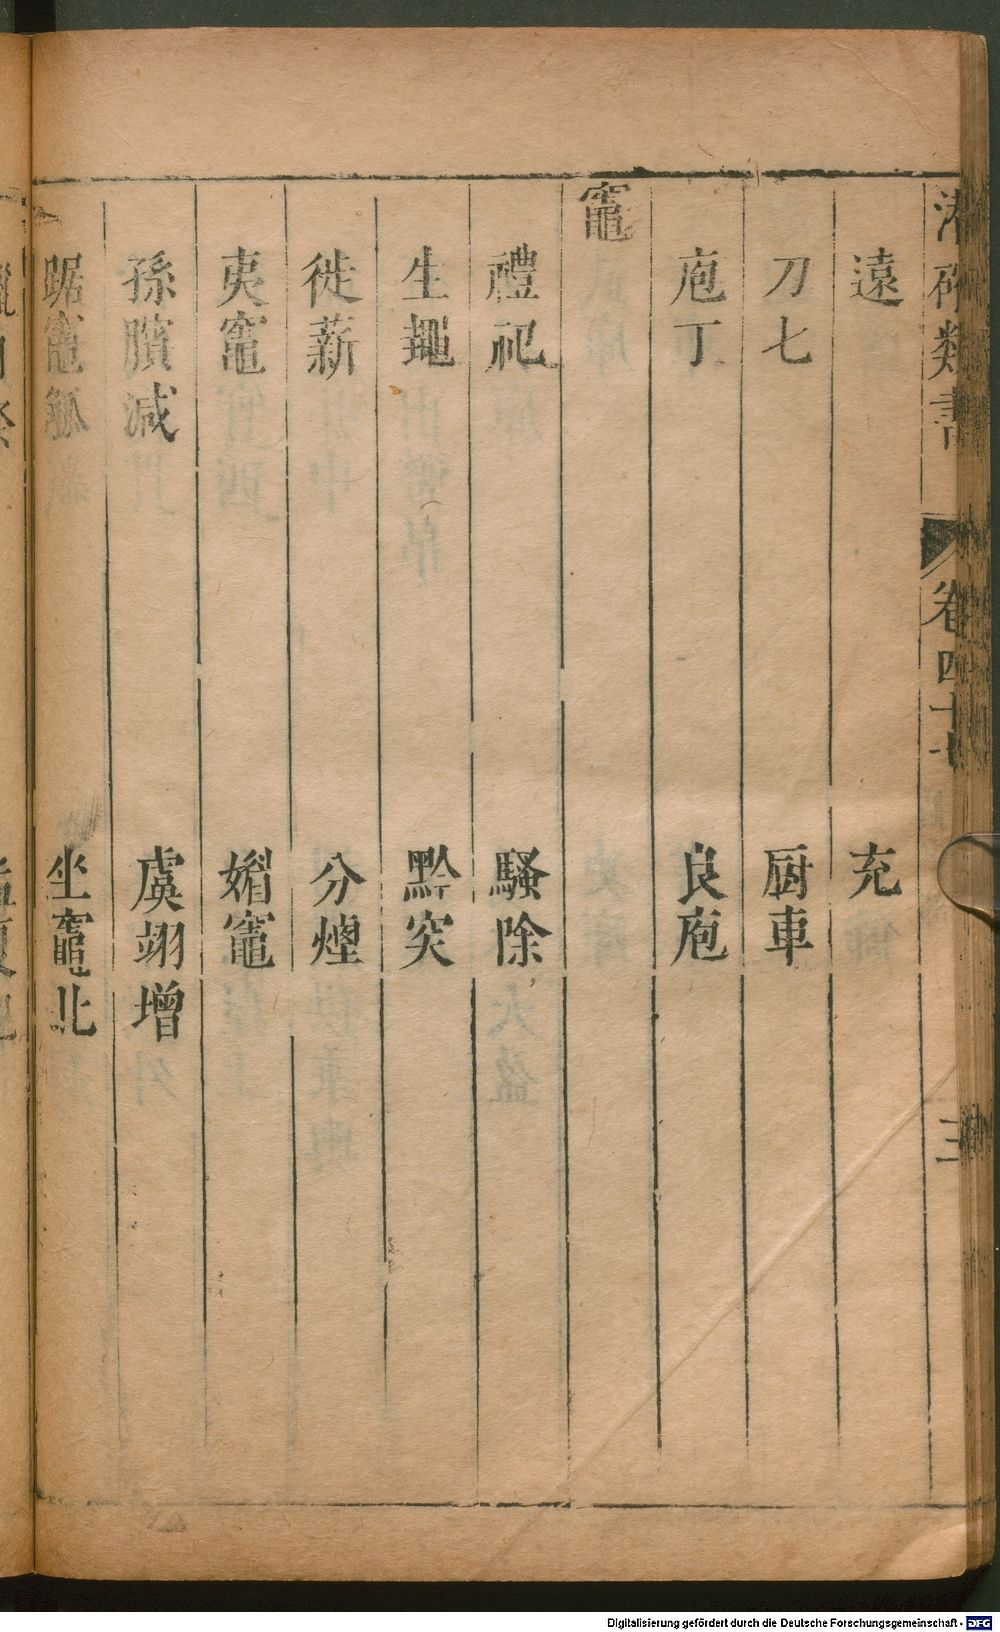 潛確類書 卷四十七 三
遠 充
刀七 厨車
庖丁 良庖
竈
禮祀 騷除
生鼃 黔突
徙薪 分煙
夷竈 媚竈
孫臏減 虞翊增
踞竈觚 坐竈北
Digitalisierung gefördert durch die Deutsche Forschungsgemeinschaft - DFG